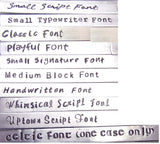 Small Script Font
Small Typewriter Font
Classic Font
Playful Font
Small Signature Font
Medium Block Font
Handwritten Font
Whimsical Script Font
Uptown Script Font
celtic font (one case only)